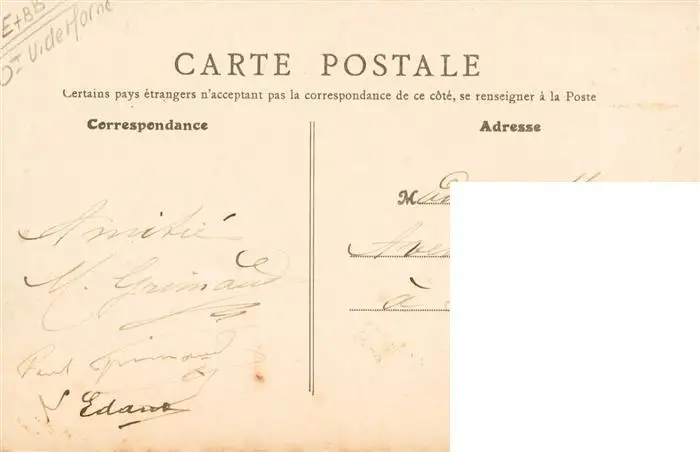 E+BB
St Viderforne
CARTE POSTALE
Certains pays étrangers n'acceptant pas la correspondance de ce côté, se renseigner à la Poste
Correspondance
Adresse
M
Ave
à
Amitié
M. Grimaud
Paul Grimaud
Edant